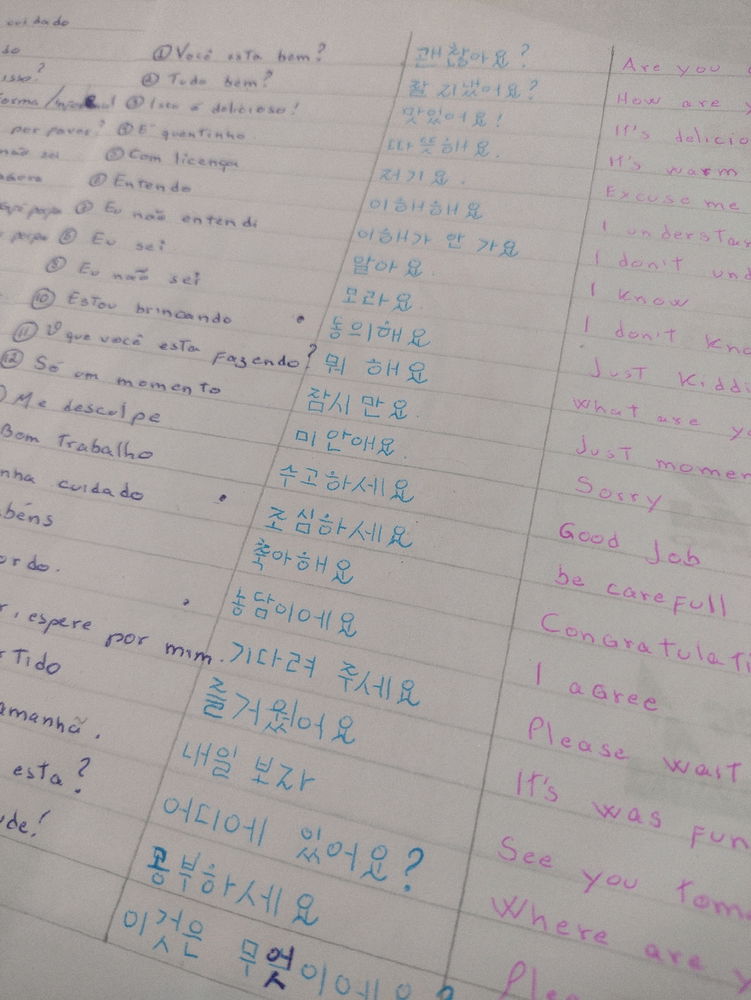 cuidado
① Você esta bem? 괜찮아요? Are you
② Tudo bem? 잘 지냈어요? How are
isso? ③ Isto é delicioso! 맛있어요! It's delicio
por favor? ④ É quentinho. 따뜻해요. It's warm
não sei ⑤ Com licença 저기요. Excuse me
agora ⑥ Entendo 이해해요 I understan
⑦ Eu não entendi 이해가 안 가요 I don't und
⑧ Eu sei 알아요. I know
⑨ Eu não sei 모라요. I don't kno
⑩ Estou brincando 농의해요 Just kiddi
⑪ O que você esta fazendo? 뭐 해요 What are yo
⑫ Só um momento 잠시만요. Just momen
Me desculpe 미안애요. Sorry
Bom Trabalho 수고하세요 Good Job
nha cuidado 조심하세요 be carefull
béns 축아해요 Congratulati
ordo. 농담이에요 I agree
r, espere por mim. 기다려 주세요 Please wait
rtido 즐거웠어요 It's was fun
amanhã. 내일 보자 See you tomo
esta? 어디에 있어요? Where are y
ude! 공부하세요 Plea
이것은 무엇이에요?